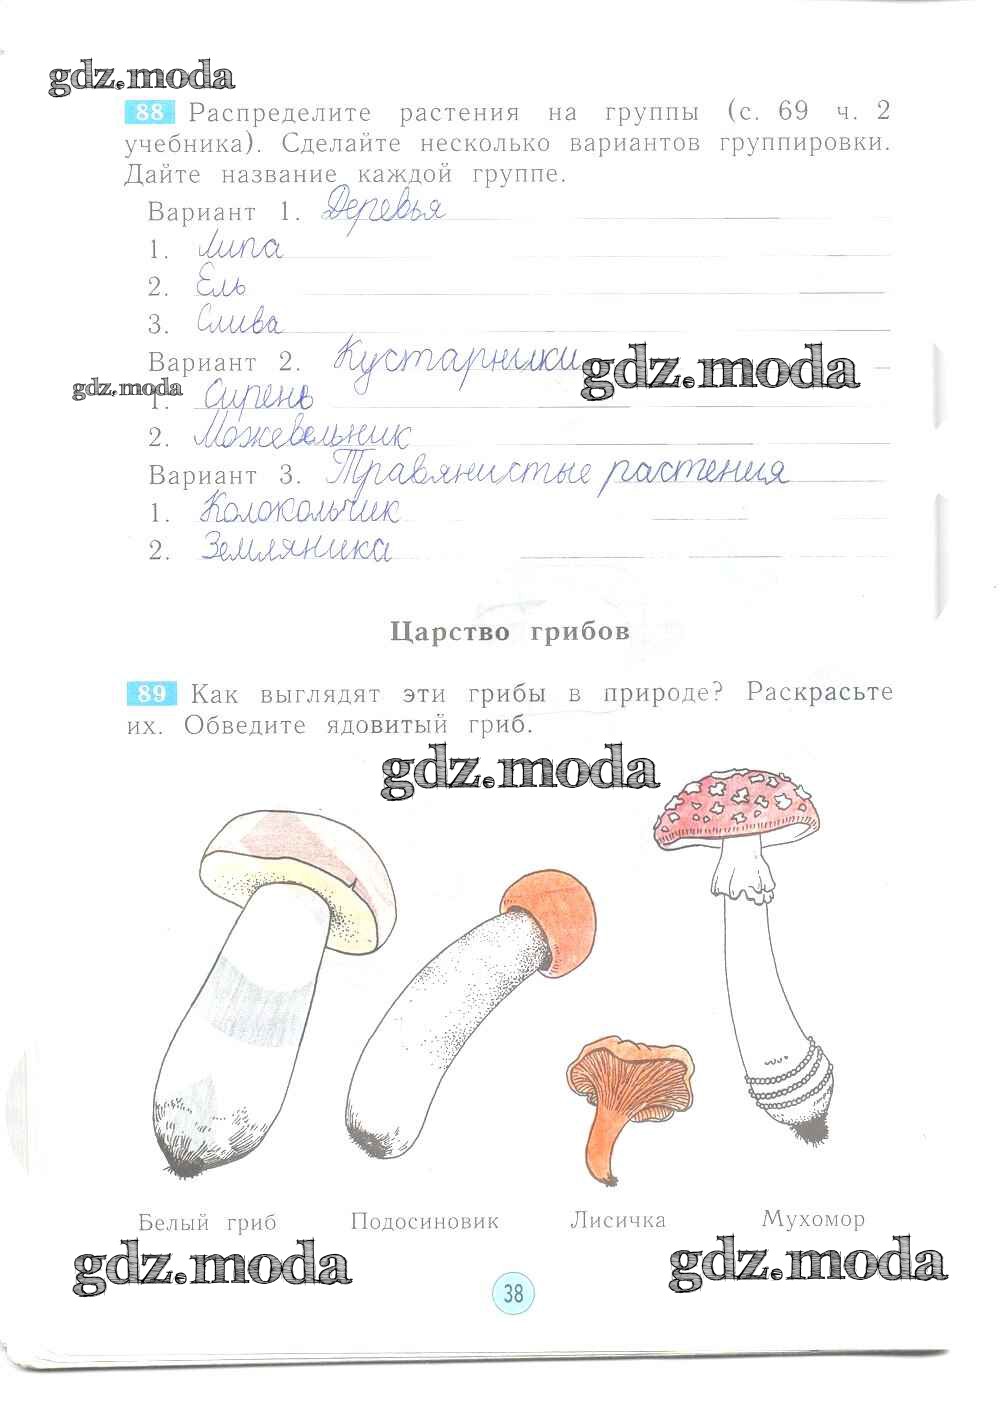 gdz.moda
88 Распределите растения на группы (с. 69 ч. 2
учебника). Сделайте несколько вариантов группировки.
Дайте название каждой группе.
Вариант 1. Деревья
1. Липа
2. Ель
3. Слива
Вариант 2. Кустарники
gdz.moda
gdz.moda
1. Сирень
2. Можевельник
Вариант 3. Травянистые растения
1. Колокольчик
2. Земляника
Царство грибов
89 Как выглядят эти грибы в природе? Раскрасьте
их. Обведите ядовитый гриб.
gdz.moda
Белый гриб Подосиновик Лисичка Мухомор
gdz.moda gdz.moda
38